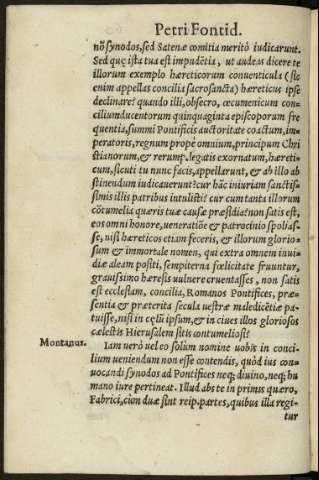 Petri Fontid.
nõ synodos, sed Satenæ comitia meritò iudicarunt.
Sed quę ista tua est impudẽtia, ut audeas dicere te
illorum exemplo hæreticorum conuenticula (sic
enim appellas concilia sacrosancta) hæreticus ipse
declinare? quando illi, obsecro, œcumenicum con-
cilium ducentorum quinquaginta episcoporum fre
quentia, summi Pontificis auctoritate coactum, im-
peratoris, regnum propè omnium, principum Chri
stianorum, & rerump. legatis exornatum, hæreti-
cum, sicuti tu nunc facis, appellarunt, & ab illo ab
stinendum iudicauerunt? cur hãc iniuriam sanctis-
simis illis patribus intulisti? cur cum tanta illorum
cõtumelia quæris tuæ causæ præsidia? non satis est,
eos omni honore, ueneratiõe & patrocinio spolias-
se, nisi hæreticos etiam feceris, & illorum glorio-
sum & immortale nomen, qui extra omnem inui-
diæ aleam positi, sempiterna fœlicitate fruuntur,
grauissimo hæresis uulnere cruentasses, non satis
est ecclesiam, concilia, Romanos Pontifices, præ-
sentia & præterita secula uestræ maledicẽtiæ pa-
tuisse, nisi in cęlũ ipsum, & in ciues illos gloriosos
cælestis Hierusalem sitis contumeliosi?
Montanus.
Iam uerò uel eo solùm nomine uobis in conci-
lium ueniendum non esse contendis, quòd ius con-
uocandi synodos ad Pontifices neq; diuino, neq; hu
mano iure pertineat. Illud abs te in primis quæro,
Fabrici, cùm duæ sint reip. partes, quibus illa regi-
tur